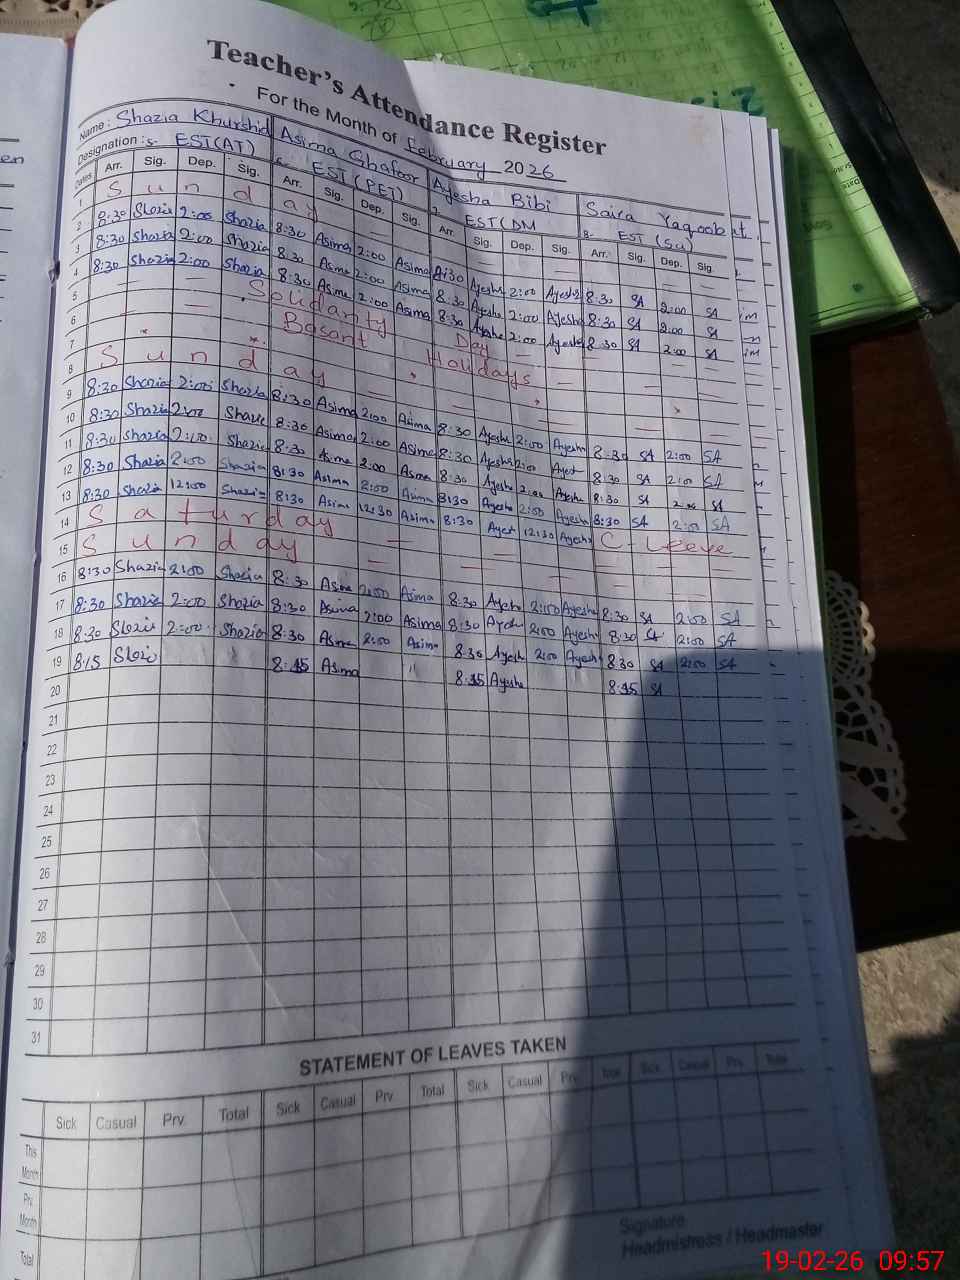 Teacher's Attendance Register
For the Month of February 2026
Name: Shazia Khurshid Asima Ghafoor Ayesha Bibi Saira Yaqoob
Designation: 5. EST(AT) 6. EST(PET) 7. EST(DM 8. EST (SU)
Dates Arr. Sig. Dep. Sig. Arr. Sig. Dep. Sig. Arr. Sig. Dep. Sig. Arr. Sig. Dep. Sig.
1 Sunday
2 8:30 Shazia 2:00 Shazia 8:30 Asima 2:00 Asima 8:30 Ayesha 2:00 Ayesha 8:30 SA 2:00 SA
3 8:30 Shazia 2:00 Shazia 8:30 Asima 2:00 Asima 8:30 Ayesha 2:00 Ayesha 8:30 SA 2:00 SA
4 8:30 Shazia 2:00 Shazia 8:30 Asima 2:00 Asima 8:30 Ayesha 2:00 Ayesha 8:30 SA 2:00 SA
5 Solidarity Day
6 Basant Holidays
7
8 Sunday
9 8:30 Shazia 2:00 Shazia 8:30 Asima 2:00 Asima 8:30 Ayesha 2:00 Ayesha 8:30 SA 2:00 SA
10 8:30 Shazia 2:00 8:30 Asima 2:00 Asima 8:30 Ayesha 2:00 8:30 SA 2:00 SA
11 8:30 Shazia 2:00 Shazia 8:30 Asima 2:00 Asima 8:30 Ayesha 2:00 Ayesha 8:30 SA 2:00 SA
12 8:30 Shazia 2:00 Shazia 8:30 Asima 2:00 Asima 8:30 Ayesha 2:00 Ayesha 8:30 SA 2:00 SA
13 8:30 Shazia 12:00 Shazia 8:30 Asima 12:30 Asima 8:30 12:30 Ayesha C-Leeve
14 Saturday
15 Sunday
16 8:30 Shazia 2:00 Shazia 8:30 Asima 2:00 Asima 8:30 Ayesha 2:00 Ayesha 8:30 SA 2:00 SA
17 8:30 Shazia 2:00 Shazia 8:30 Asima 2:00 Asima 8:30 Ayesha 2:00 Ayesha 8:30 SA 2:00 SA
18 8:30 Shazia 2:00 Shazia 8:30 Asima 2:00 Asima 8:30 Ayesha 2:00 Ayesha 8:30 SA 2:00 SA
19 8:15 8:15 Asima 8:15 Ayesha 8:15 SA
20
21
22
23
24
25
26
27
28
29
30
31
STATEMENT OF LEAVES TAKEN
Sick Casual Prv. Total Sick Casual Prv Total Sick Casual Prv Total Sick Casual Prv. Total
This Month
Prv. Month
Total
Signature
Headmistress / Headmaster
19-02-26 09:57